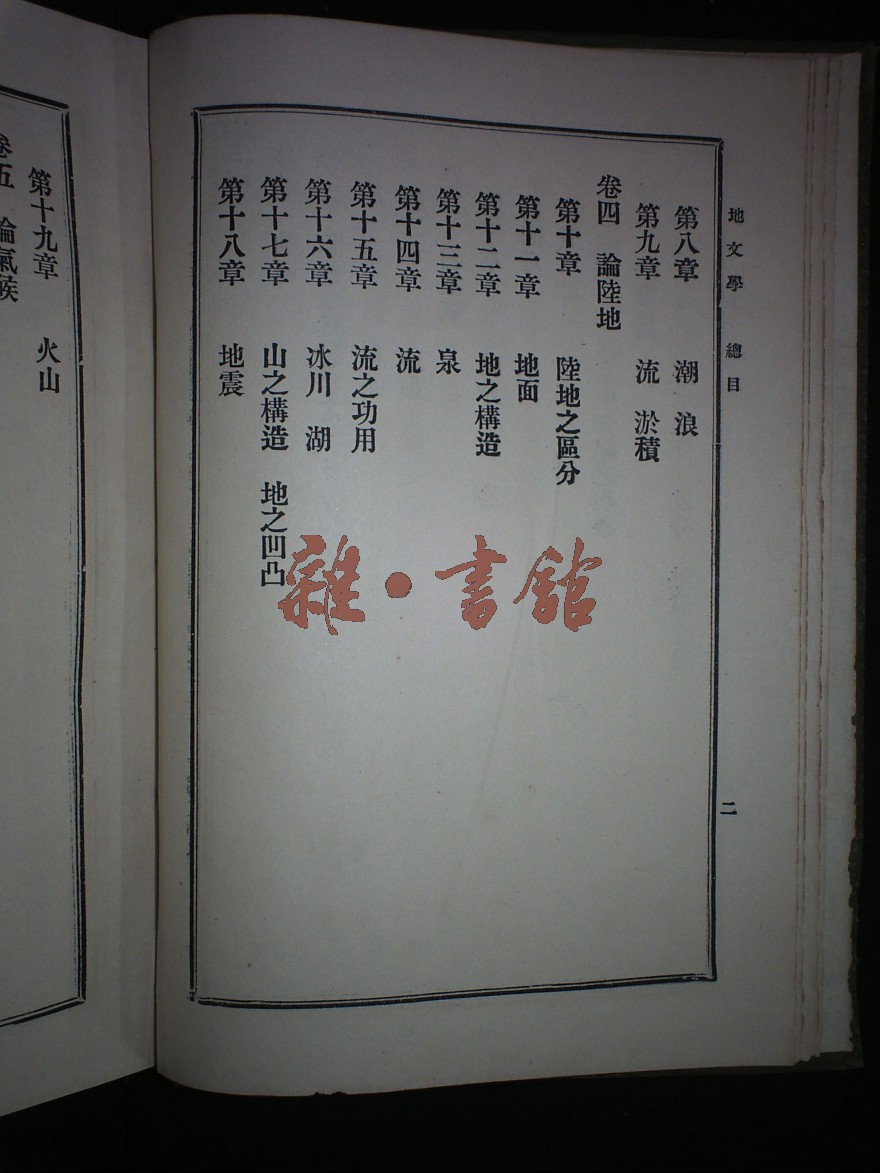 地文學　總目
第八章　潮　浪
第九章　流　淤積
卷四　論陸地
第十章　陸地之區分
第十一章　地面
第十二章　地之構造
第十三章　泉
第十四章　流
第十五章　流之功用
第十六章　冰川　湖
第十七章　山之構造　地之凹凸
第十八章　地震
二
第十九章　火山
卷五　論氣候
雜・書館